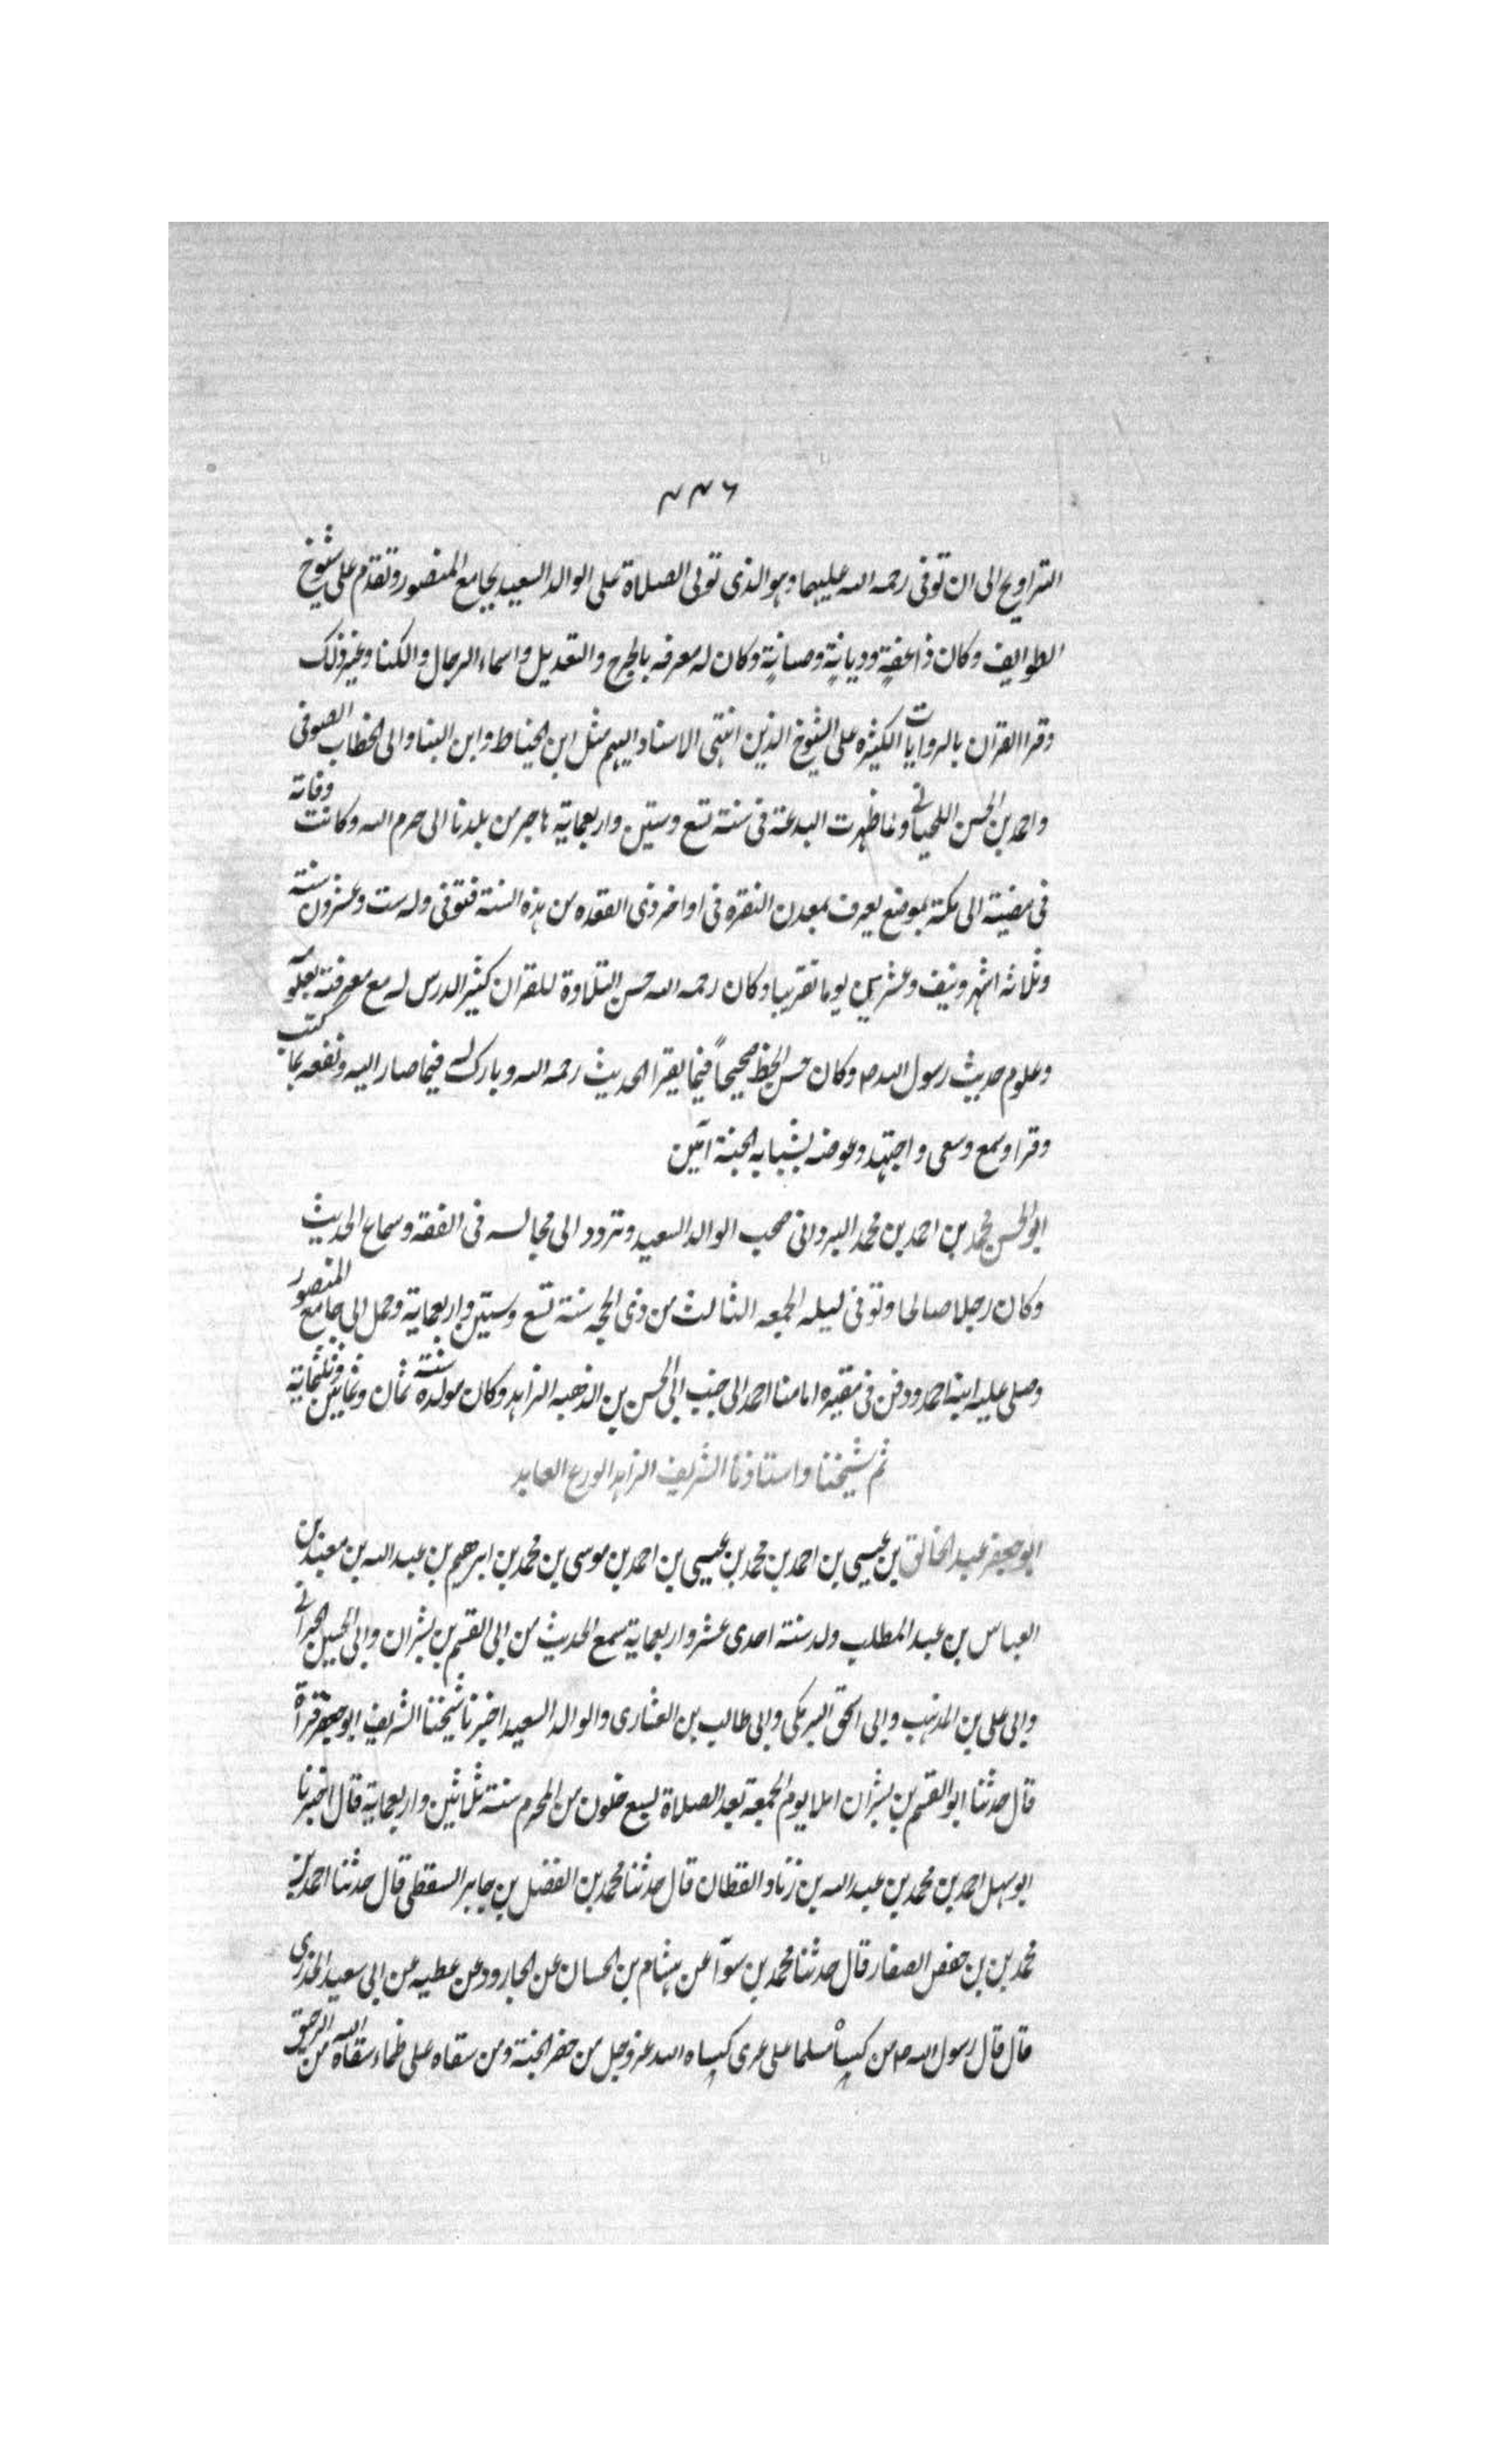 ٢٢٦
التراويح الى ان توفى رحمه الله عليهما وهو الذى تولى الصلاة على الوالد السعيد بجامع المنصور وتقدم على شيوخ
الطوايف وكان ذا عفةٍ وديانةٍ وصيانةٍ وكان له معرفه بالجرح والتعديل واسماء الرجال والكنا وغير ذلك
وقرا القران بالروايات الكثيره على الشيوخ الذين انتهى الاسناد اليهم مثل ابن الخياط وابن البنا وابى الخطاب الصوفى
واحمد بن الحسن اللحيانى ولما ظهرت البدعة فى سنة تسع وستين واربعماية هاجر من بلدنا الى حرم الله وكانت وفاته
فى مضيه الى مكة بموضع يعرف بمعدن النقره فى اواخر ذى القعده من هذه السنة فتوفى وله ست وعشرون سنة
وثلاثة اشهر ونيف وعشرين يوما تقريبا وكان رحمه الله حسن التلاوة للقران كثير الدرس له مع معرفته بعلومه
وعلوم حديث رسول الله ص وكان حسن الخط صحيحاً فيما يقرا الحديث رحمه الله وبارك له فيما صار اليه ونفعه بما كتب
وقرا وسمع وسعى واجتهد وعوضه بشبابه الجنة آمين
ابو الحسن محمد بن احمد بن محمد البردانى صحب الوالد السعيد وتردد الى مجالسه فى الفقه وسماع الحديث
وكان رجلا صالحا وتوفى ليله الجمعه الثالث من ذى الحجه سنة تسع وستين واربعماية وحمل الى جامع المنصور
وصلى عليه ابنه احمد ودفن فى مقبره امامنا احمد الى جنب ابى الحسن بن الذهبه الزاهد وكان مولده سنة ثمان وثمانين وثلثماية
ثم شيخنا واستاذنا الشريف الزاهد الورع العابد
ابو جعفر عبد الخالق بن عيسى بن احمد بن محمد بن عيسى بن احمد بن موسى بن محمد بن ابرهيم بن عبد الله بن معبد بن
العباس بن عبد المطلب ولد سنة احدى عشر واربعماية سمع الحديث من ابى القسم بن بشران وابى الحسين الحرانى
وابى على بن المذهب وابى اسحق البرمكى وابى طالب بن العشارى والوالد السعيد اخبرنا شيخنا الشريف ابو جعفر قرآة
قال حدثنا ابو القسم بن بشران املا يوم الجمعة بعد الصلاة لسبع خلون من المحرم سنة ثلاثين واربعماية قال اخبرنا
ابو سهل احمد بن محمد بن عبد الله بن زناد القطان قال حدثنا محمد بن الفضل بن جابر السقطى قال حدثنا احمد بن
محمد بن بن حفص الصفار قال حدثنا محمد بن سوآ عن هشام بن الحسان عن الجارود عن عطيه عن ابى سعيد الخدرى
قال قال رسول الله ص من كسا مسلما على عرى كساه الله عز وجل من حضر الجنة ومن سقاه على ظماء سقاه الله من الرحيق